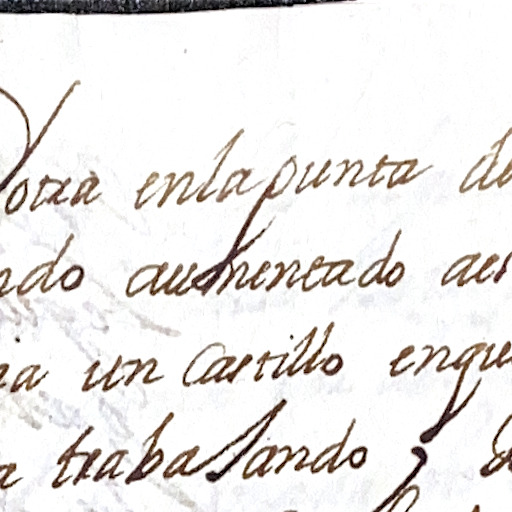 Yotra enlapunta de
ndo aumentado aes
na un Castillo enque
a trabaJando y